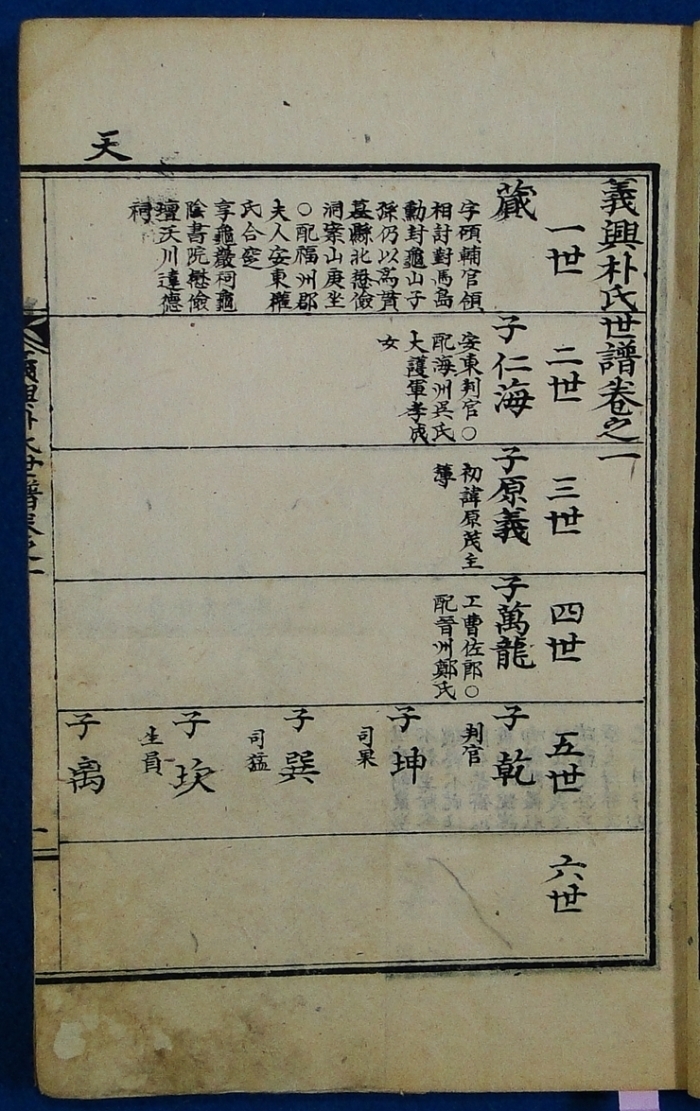 天
義興朴氏世譜卷之一
一世
蕆
字碩輔官領
相討對馬島
勳封龜山子
孫仍以爲貫
墓縣北懋儉
洞案山庚坐
○配福州郡
夫人安東權
氏合窆
享龜巖祠龜
陰書院懋儉
壇沃川達德
祠
二世
子仁海
安東判官○
配海州吳氏
大護軍孝成
女
三世
子原義
初諱原茂主
簿
四世
子萬龍
工曹佐郞○
配晉州鄭氏
五世
子乾
判官
子坤
司果
子巽
司猛
子
生員
子离
六世
朴氏世譜卷之一
一